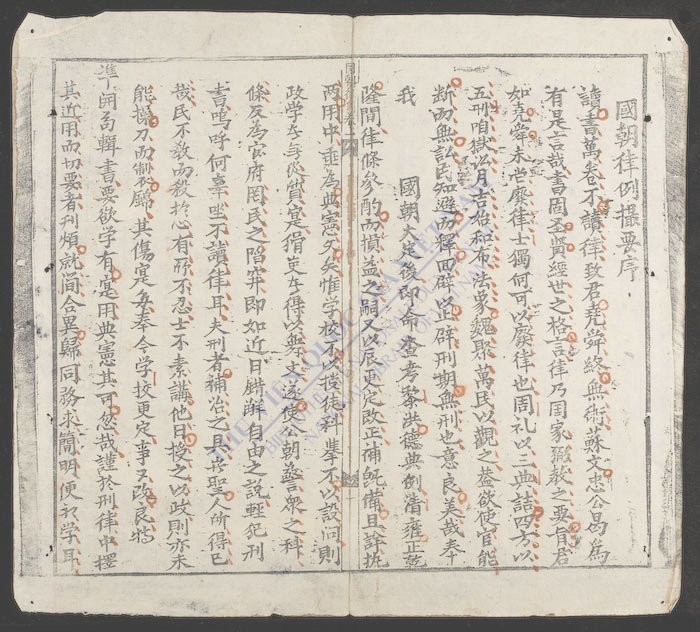 國朝律例撮要序
讀書萬卷不讀律致君堯舜終無術蘇文忠公曷為
有是言哉書固圣賢經世之格言律乃国家弼教之要有君
如堯舜未尝廢律士獨何可以廢律也周礼以三典詰四方以
五刑听獄訟月吉始和布法象魏聚萬民以觀之葢欲使官能
断而無訟民知避而釋回辟以止辟刑期無刑也意良美哉奉
我
國朝大定後即命查考黎洪德典例清雍正乾
隆間律條參酌而損益之嗣又以辰更定改正既備且詳执
两用中垂為典憲久矣惟学校不以授徒科舉不以設问則
政学從質寔猾吏得以舞文遂使公朝懲衆之科
條反為官府罔民之陷穽即如近日錯解自由之說輕犯刑
書嗚呼何辜坐不讀律耳夫刑者補治之具聖人所得已
哉民不教而殺於心有所不忍士不素講他日授之以政則亦未
能操刀而製錦其傷寔多奉今学校更定事々改良將
準開局輯書要欲学有寔用典憲其可忽哉謹於刑律中擇
其近用而切要者刊煩就简合異歸同務求簡明便初学耳
THƯ VIỆN QUỐC GIA VIỆT NAM
BIBLIOTHÈQUE NATIONALE DU VIETNAM
NATIONAL LIBRARY OF VIETNAM